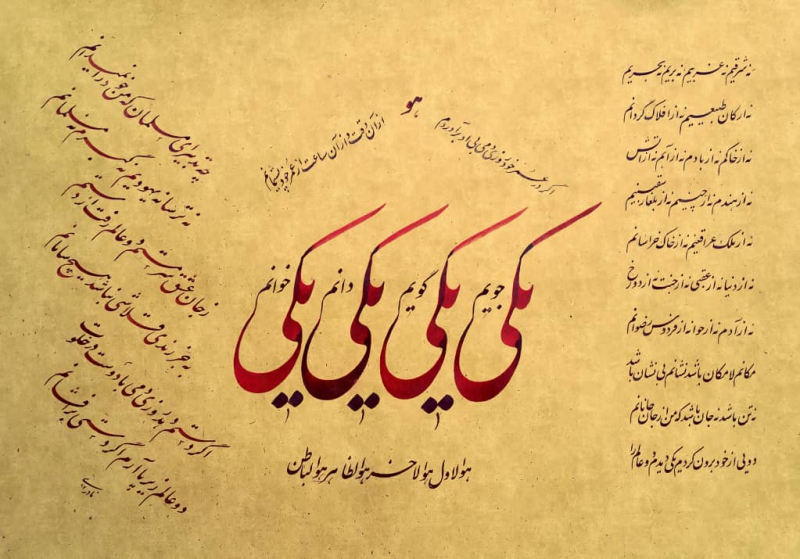 هو
نه شرقیم نه غربیم نه بریم نه بحریم
نه ارکان طبیعیم نه از افلاک گردانم
نه از خاکم نه از بادم نه از آبم نه از آتش
نه از هندم نه از چینم نه از بلغار سقسینم
نه از ملک عراقینم نه از خاک خراسانم
نه از دنیا نه از عقبی نه از جنت نه از دوزخ
نه از آدم نه از حوا نه از فردوس رضوانم
مکانم لامکان باشد نشانم بی نشان باشد
نه تن باشد نه جان باشد که من از جان جانانم
دویی از خود برون کردم یکی دیدم دو عالم را
یکی جویم یکی گویم یکی دانم یکی خوانم
هوالاول هوالاخر هوالظاهر هوالباطن
اگر در عمر خود روزی دمی بی او برآوردم
از آن وقت و از آن ساعت ز عمر خود پشیمانم
چه تدبیر ای مسلمانان که من خود را نمیدانم
نه ترسا نه یهودیم نه گبرم نه مسلمانم
ز جام عشق سرمستم دو عالم رفت از دستم
به جز رندی و قلاشی نباشد هیچ سامانم
اگر دستم دهد روزی دمی با دوست در خلوت
دو عالم زیر پا آرم اگر دستی برافشانم